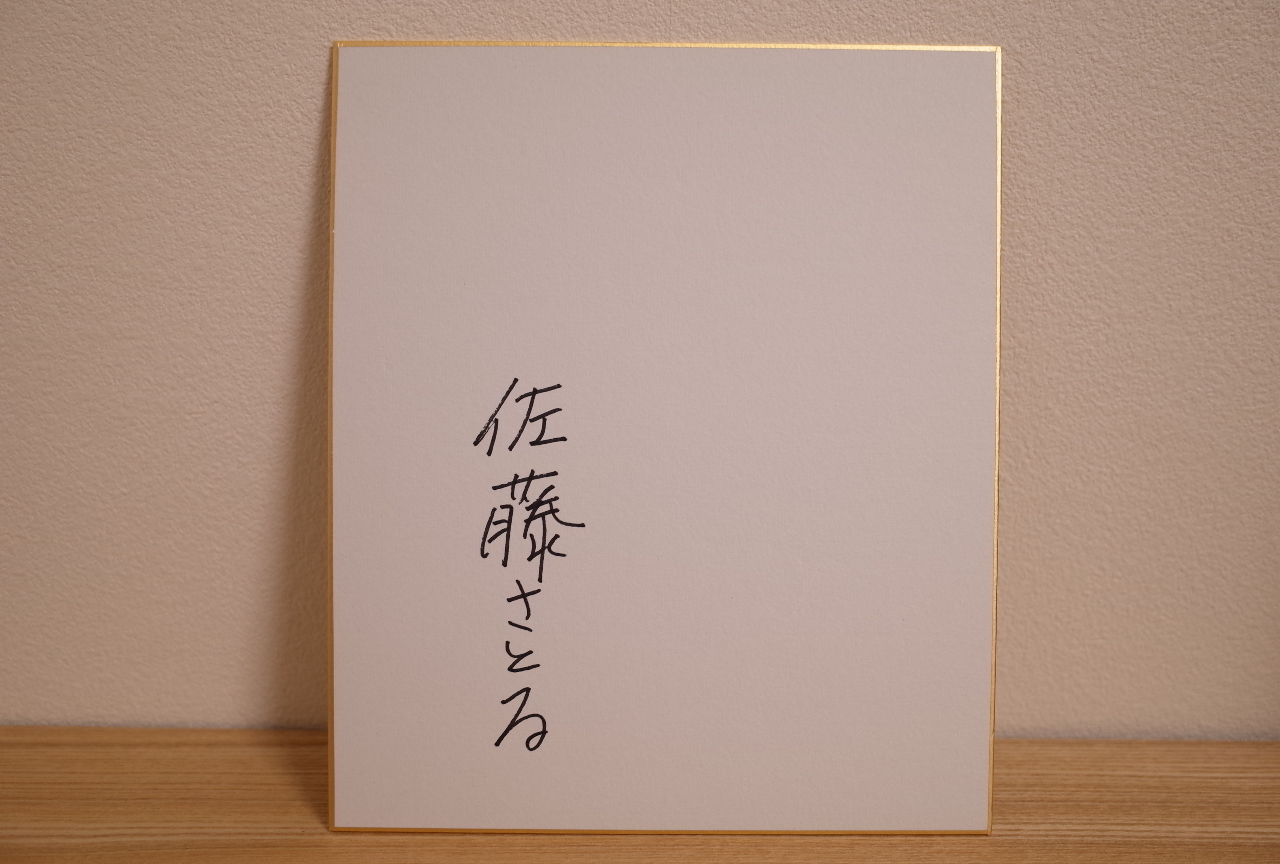 佐藤さとる